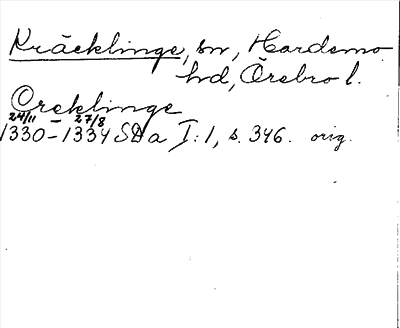 Kräcklinge, sn, Hardemo
hd, Örebro l.
Creklinge
24/11 27/8
1330-1334 SDa I:1, s. 346. orig.